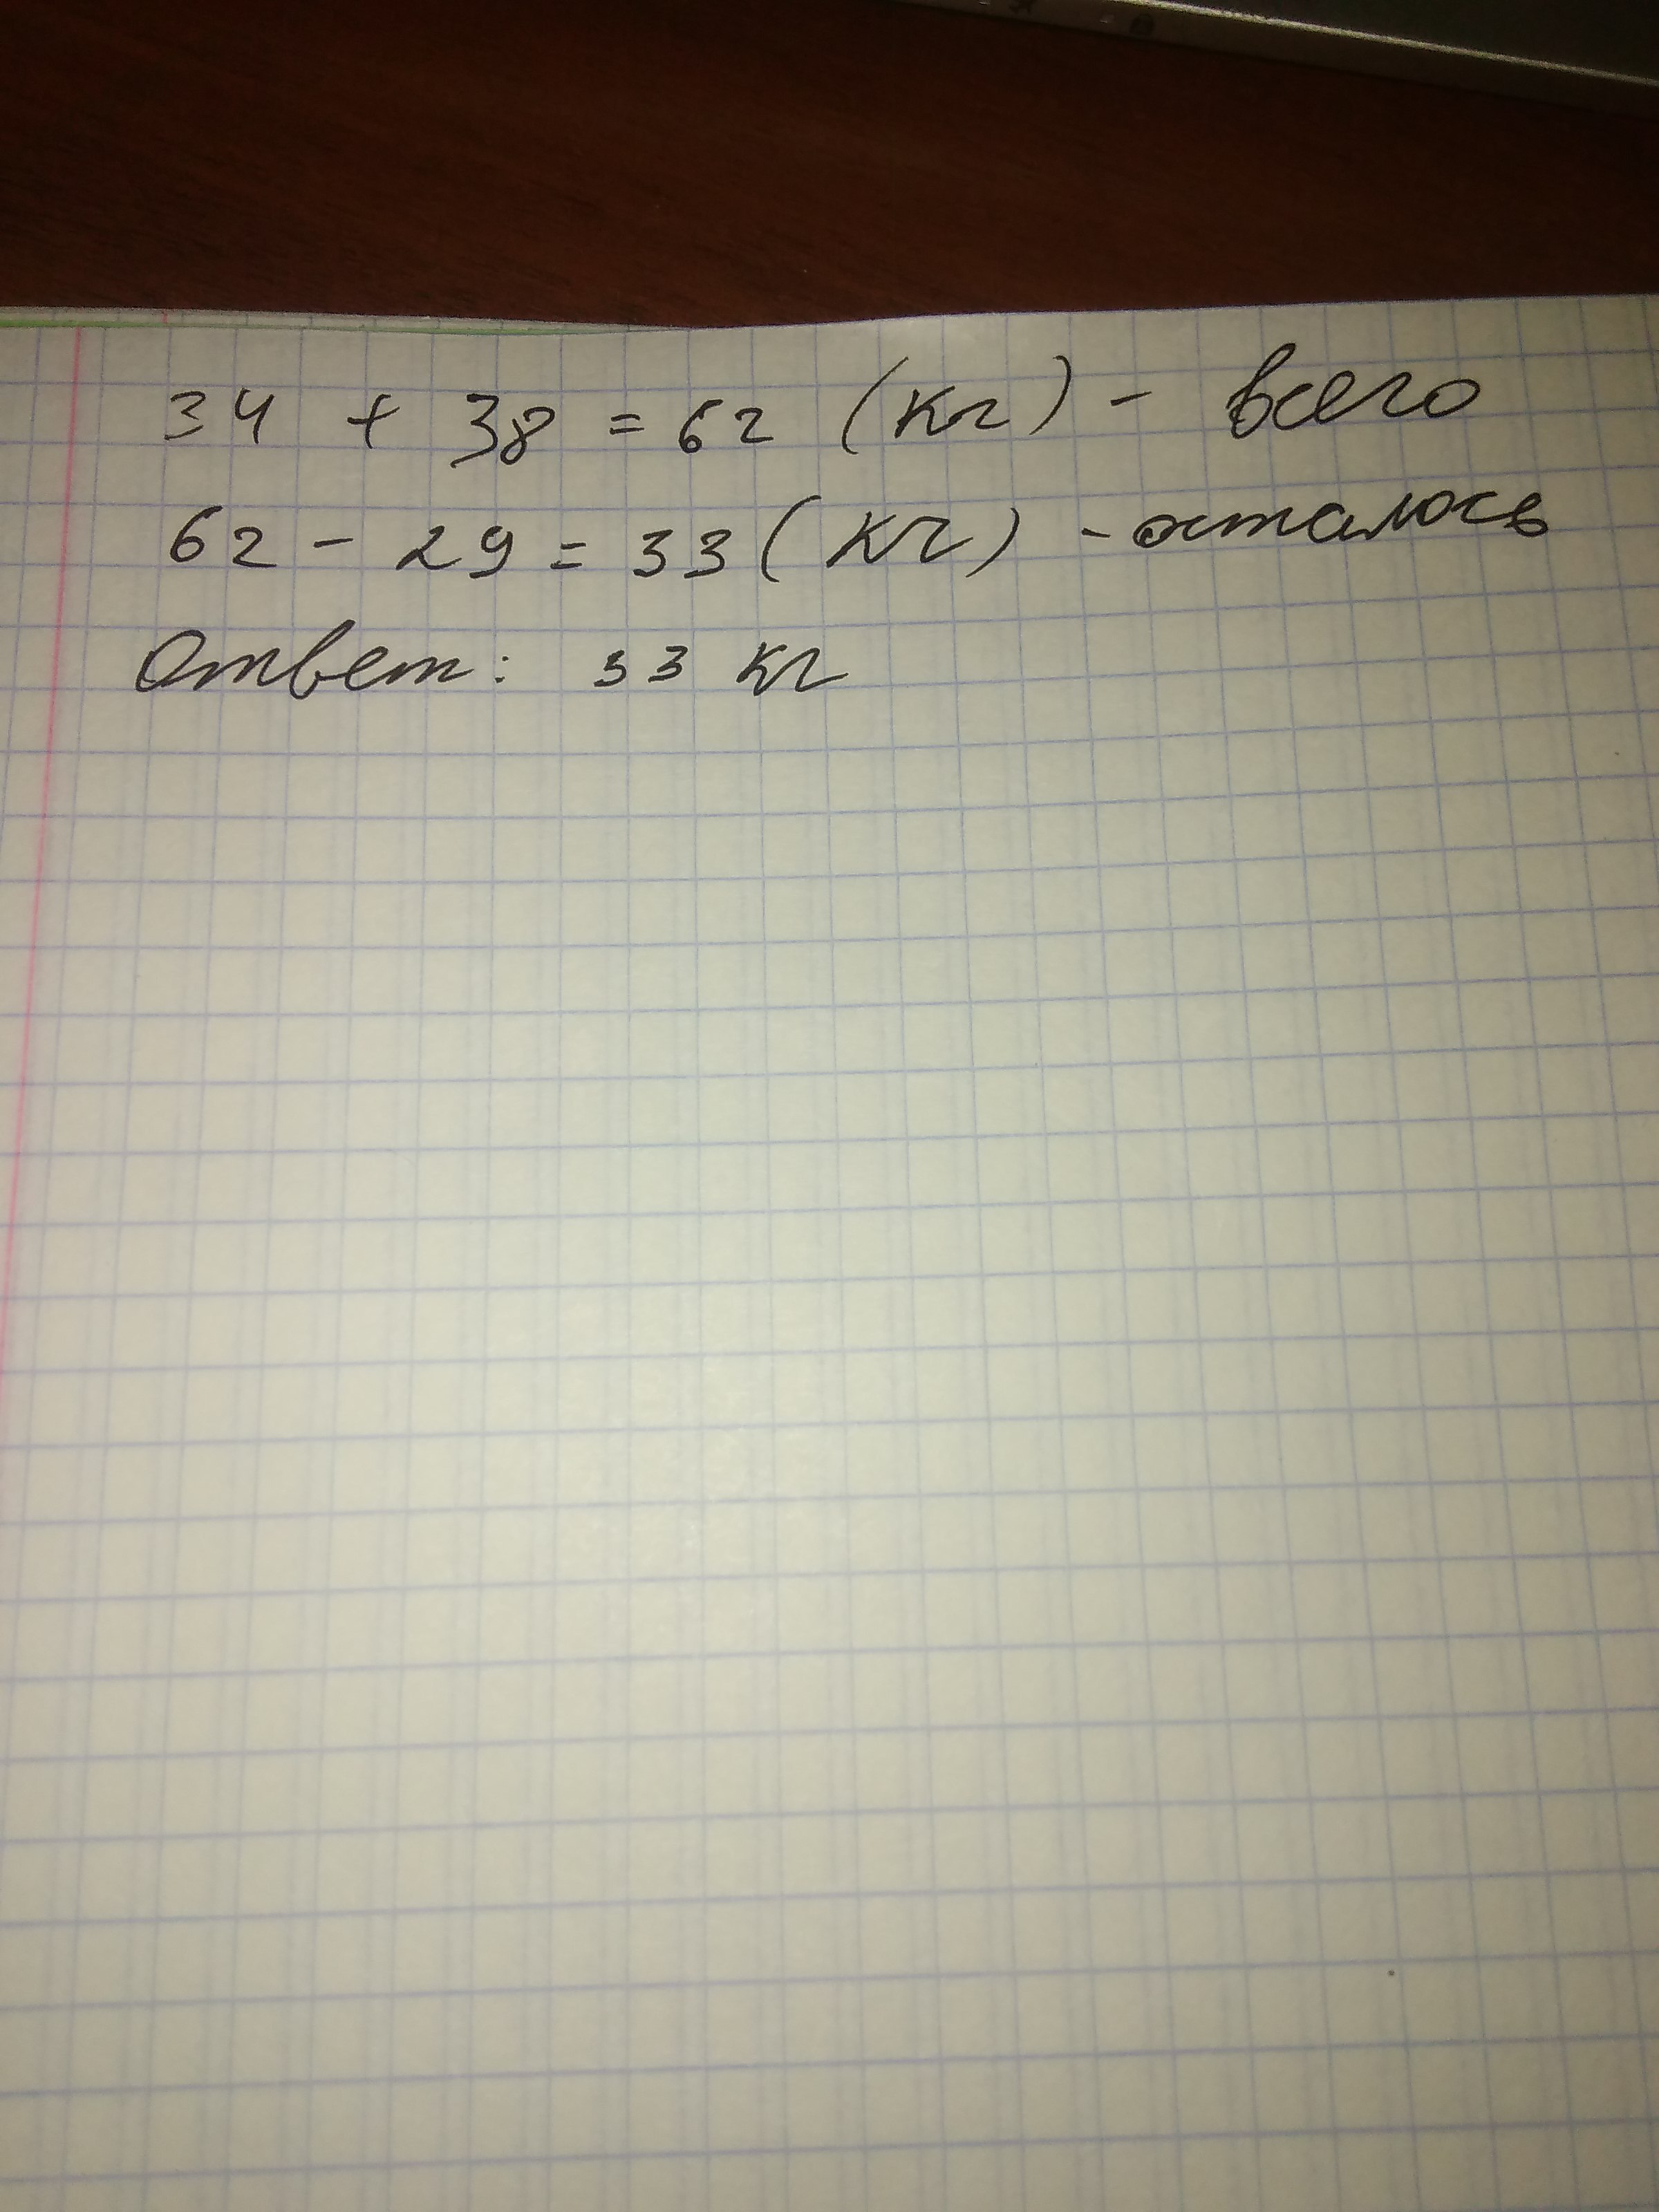 34 + 38 = 62 (кг) - всего
62 - 29 = 33 (кг) - осталось
Ответ: 33 кг